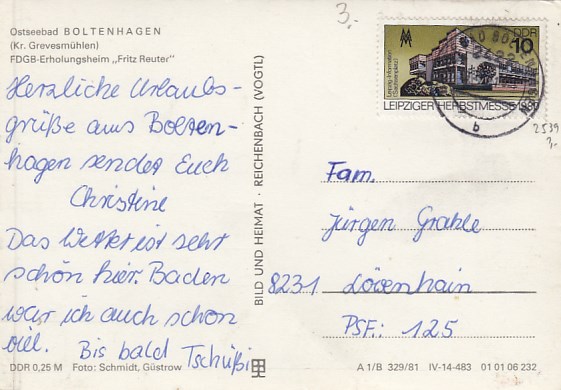 Ostseebad BOLTENHAGEN
(Kr. Grevesmühlen)
FDGB-Erholungsheim „Fritz Reuter"
Herzliche Urlaubs-
grüße aus Bolten-
hagen sendet Euch
Christine
Das Wetter ist sehr
schön hier. Baden
war ich auch schon
viel. Bis bald Tschüßi
DDR 0,25 M Foto: Schmidt, Güstrow
BILD UND HEIMAT · REICHENBACH (VOGTL)
3,-
DDR
10
Leipzig-Information
(Sachsenplatz)
LEIPZIGER HERBSTMESSE 1981
b
2539
3,-
Fam.
Jürgen Grahle
8231 Löwenhain
PSF.: 125
A 1/B 329/81 IV-14-483 01 01 06 232